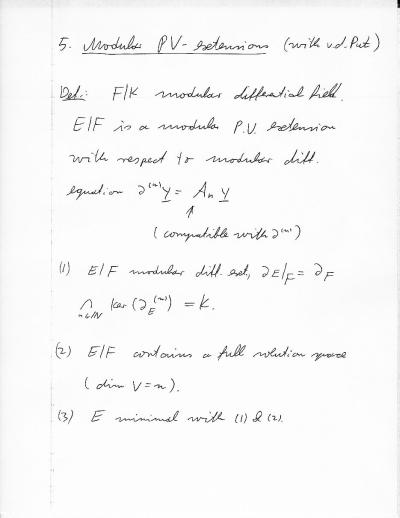 5. Modular PV-extensions (with v.d. Put)
Def.: F/K modular differential field.
E/F is a modular P.V. extension
with respect to modular diff.
equation ∂⁽ⁿ⁾y = Aₙ y
↑
(compatible with ∂⁽ⁿ⁾)
(1) E/F modular diff. ext, ∂E/F = ∂F
⋂ ker(∂E⁽ⁿ⁾) = K.
n∈ℕ
(2) E/F contains a full solution space
(dim V = n).
(3) E minimal with (1) & (2).